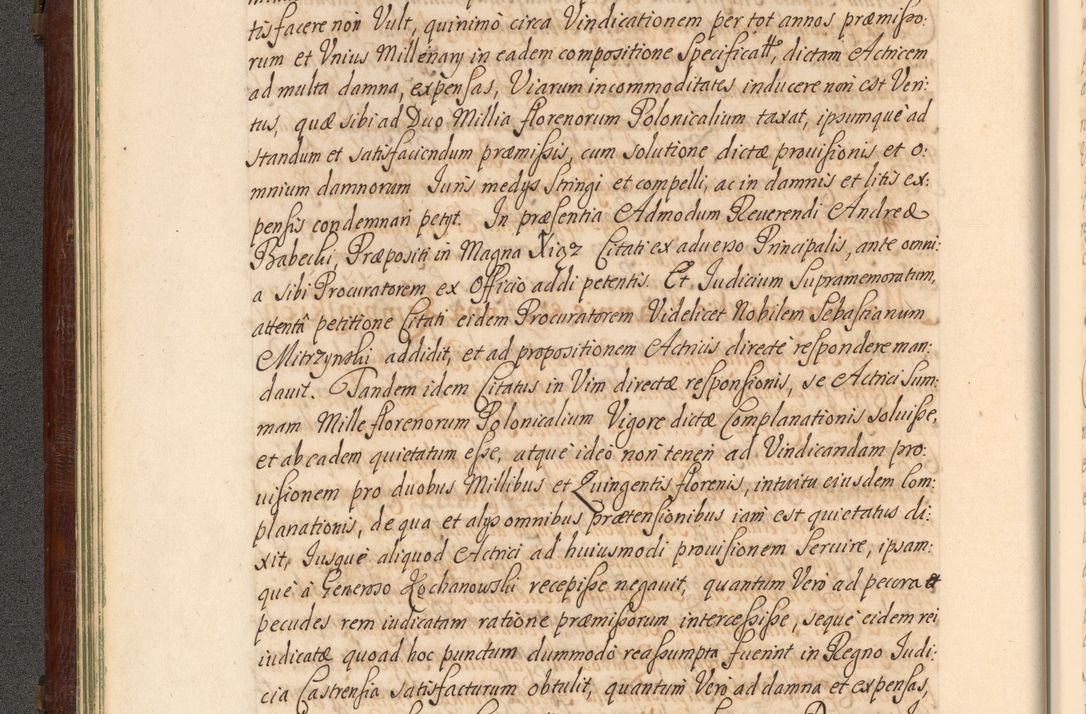 tisfacere non Vult, quinimò circa Vindicationem per tot annos præmisso:
rum et Vnius Millenarÿ in eadem compositione Specificatt, dictam Actricem
ad multa damna, expensas, Viarum incommoditates inducere non est Veri
tus, quæ sibi ad Duo Millia florenorum Polonicalium taxat, ipsumque ad
standum et satisfaciendum præmissis, cum solutione dictæ prouisionis et o:
mnium damnorum Juris medÿs Stringi et compelli, ac in damnis et litis ex:
pensis condemnari petÿt. In præsentia Admodum Reuerendi Andreæ
Babecki, Præpositi in Magna Xiąz Citati ex aduerso Principalis, ante omni:
a sibi Procuratorem ex Officio addi petentis. Et Judicium Supramemoratum,
attentâ petitione Citati eidem Procuratorem Videlicet Nobilem Sebastianum
Mitrzynski addidit, et ad propositionem Actricis directè respondere man:
dauit. Tandem idem Citatus in Vim directæ responsionis, se Actrici Sum:
mam Mille florenorum Polonicalium Vigore dictæ Complanationis soluisse,
et ab eadem quietatum esse, atque ideò non teneri ad Vindicandam pro:
uisionem pro duobus Millibus et Quingentis florenis, intuitu eiusdem Com:
planationis, de qua et alÿs omnibus prætensionibus iam est quietatus di:
xit, Jusque aliquod Actrici ad huiusmodi prouisionem Seruire, ipsam:
què à Generoso Kochanowski recepisse negauit, quantum Verò ad pecora et
pecudes rem iudicatam ratione præmissorum intercessisse, seque eidem rei
iudicatæ quoad hoc punctum dummodò reassumpta fuerint in Regno Judi:
cia Castrensia satisfacturum obtulit, quantum Verò ad damna et expensas,